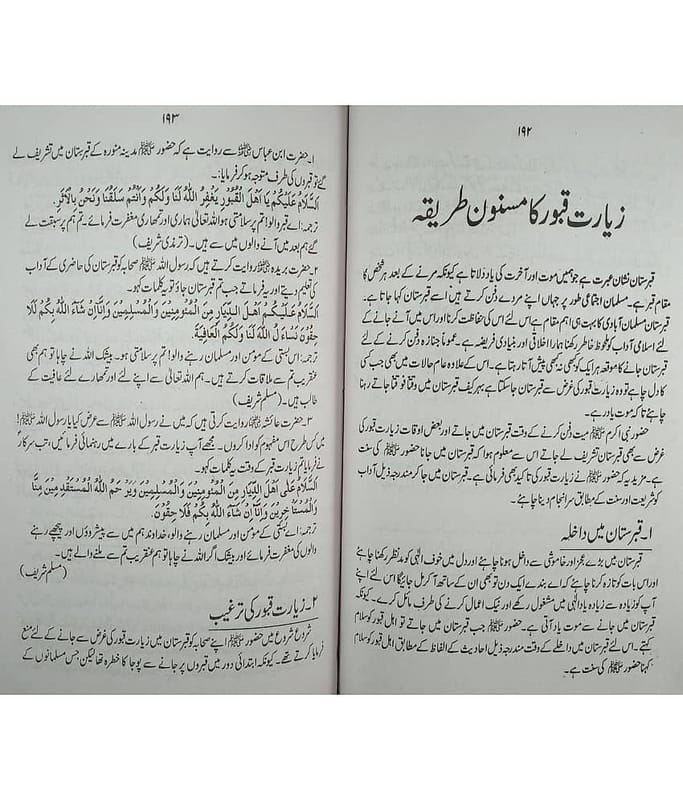 ۱۹۲
زیارت قبور کا مسنون طریقہ
قبرستان نشان عبرت ہے جو ہمیں موت اور آخرت کی یاد دلاتا ہے کیونکہ مرنے کے بعد ہر شخص کا
مقام قبر ہے۔ مسلمان اجتماعی طور پر جہاں اپنے مردے دفن کرتے ہیں اسے قبرستان کہا جاتا ہے۔
قبرستان مسلمان آبادی کا بہت ہی اہم مقام ہے اس لئے اس کی حفاظت کرنا اور اس میں آنے جانے کے
اسلامی آداب کو ملحوظ خاطر رکھنا ہمارا اخلاقی اور بنیادی فریضہ ہے۔ عموماً جنازہ دفن کرنے کے لئے
قبرستان جانے کا موقعہ ہر ایک کو کبھی نہ کبھی پیش آتا رہتا ہے۔ اس کے علاوہ عام حالات میں بھی جب کسی
کا دل چاہے تو وہ زیارت قبور کی غرض سے قبرستان جا سکتا ہے بہر کیف قبرستان میں وقتاً فوقتاً جاتے رہنا
چاہئے تاکہ موت یاد رہے۔
حضور نبی اکرم ﷺ میت دفن کرنے کے وقت قبرستان میں جاتے اور بعض اوقات زیارت قبور کی
غرض سے بھی قبرستان تشریف لے جاتے اس سے معلوم ہوا کہ قبرستان میں جانا حضور ﷺ کی سنت
ہے۔ مزید یہ کہ حضور ﷺ نے زیارت قبور کی تاکید بھی فرمائی ہے۔ قبرستان میں جا کر مندرجہ ذیل آداب
کو شریعت اور سنت کے مطابق سرانجام دینا چاہئے۔
۱۔ قبرستان میں داخلہ
قبرستان میں بڑے عجز اور خاموشی سے داخل ہونا چاہئے اور دل میں خوف الٰہی کو مدنظر رکھنا چاہئے
اور اس بات کو تازہ کرنا چاہئے کہ اے بندے ایک دن تو بھی ان کے ساتھ آ کر مل جائیگا اس لئے اپنے
آپ کو زیادہ سے زیادہ یاد الٰہی میں مشغول رکھے اور نیک اعمال کرنے کی طرف مائل کرے۔ کیونکہ
قبرستان میں جانے سے موت یاد آتی ہے۔ حضور ﷺ جب قبرستان میں جاتے تو اہل قبور کو سلام
کہتے۔ اس لئے قبرستان میں داخلے کے وقت مندرجہ ذیل احادیث کے الفاظ کے مطابق اہل قبور کو سلام
کہنا حضور ﷺ کی سنت ہے۔
۱۹۳
۱۔ حضرت ابن عباس سے روایت ہے کہ حضور ﷺ مدینہ منورہ کے قبرستان میں تشریف لے
گئے تو قبروں کی طرف متوجہ ہو کر فرمایا:۔
اَلسَّلَامُ عَلَیْکُمْ یَا اَھْلَ الْقُبُوْرِ یَغْفِرُ اللّٰہُ لَنَا وَلَکُمْ وَاَنْتُمْ سَلَفُنَا وَنَحْنُ بِالْاَثَرِ۔
ترجمہ: اے قبر والو! تم پر سلامتی ہو اللہ تعالٰی ہماری اور تمھاری مغفرت فرمائے۔ تم ہم پر سبقت لے
گئے ہم بعد میں آنے والوں میں سے ہیں۔ (ترمذی شریف)
۲۔ حضرت بریدہ روایت کرتے ہیں کہ رسول اللہ ﷺ صحابہ کو قبرستان کی حاضری کے آداب
کی تعلیم دیتے اور یہ فرماتے کہ جب تم قبرستان جاؤ تو یہ کلمات کہو۔
اَلسَّلَامُ عَلَیْکُمْ اَھْلَ الدِّیَارِ مِنَ الْمُؤْمِنِیْنَ وَالْمُسْلِمِیْنَ وَاِنَّا اِنْ شَآءَ اللّٰہُ بِکُمْ لَلَا
حِقُوْنَ نَسْاَلُ اللّٰہَ لَنَا وَلَکُمُ الْعَافِیَةَ۔
ترجمہ: اس بستی کے مؤمن اور مسلمان رہنے والو! تم پر سلامتی ہو۔ بیشک اللہ نے چاہا تو ہم بھی
عنقریب تم سے ملاقات کرتے ہیں۔ ہم اللہ تعالٰی سے اپنے لئے اور تمھارے لئے عافیت کے
طالب ہیں۔ (مسلم شریف)
۳۔ حضرت عائشہ روایت کرتی ہیں کہ میں نے رسول اللہ ﷺ سے عرض کیا یا رسول اللہ ﷺ!
میں کس طرح اس مفہوم کو ادا کروں۔ مجھے آپ زیارت قبر کے بارے میں رہنمائی فرمائیں، تب سرکار
نے فرمایا تم زیارت قبر کے وقت یہ کلمات کہو۔
اَلسَّلَامُ عَلٰی اَھْلِ الدِّیَارِ مِنَ الْمُؤْمِنِیْنَ وَالْمُسْلِمِیْنَ وَیَرْحَمُ اللّٰہُ الْمُسْتَقْدِمِیْنَ مِنَّا
وَالْمُسْتَاْخِرِیْنَ وَاِنَّا اِنْ شَآءَ اللّٰہُ بِکُمْ فَلَا حِقُوْنَ۔
ترجمہ: اے بستی کے مؤمن اور مسلمان رہنے والو، خداوند ہم میں سے پیشروؤں اور پیچھے رہنے
والوں کی مغفرت فرمائے اور بیشک اگر اللہ نے چاہا تو ہم عنقریب تم سے ملنے والے ہیں۔
(مسلم شریف)
۲۔ زیارت قبور کی ترغیب
شروع شروع میں حضور ﷺ اپنے صحابہ کو قبرستان میں زیارت قبور کی غرض سے جانے کے لئے منع
فرمایا کرتے تھے۔ کیونکہ ابتدائی دور میں قبروں پر جانے سے پوجا کا خطرہ تھا لیکن جس مسلمانوں کے